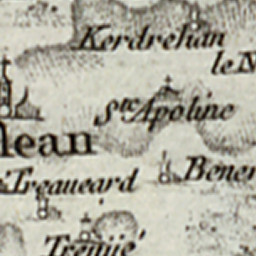 Kerdrehan
le N
Ste Apoline
lean
Bener
Treaueard